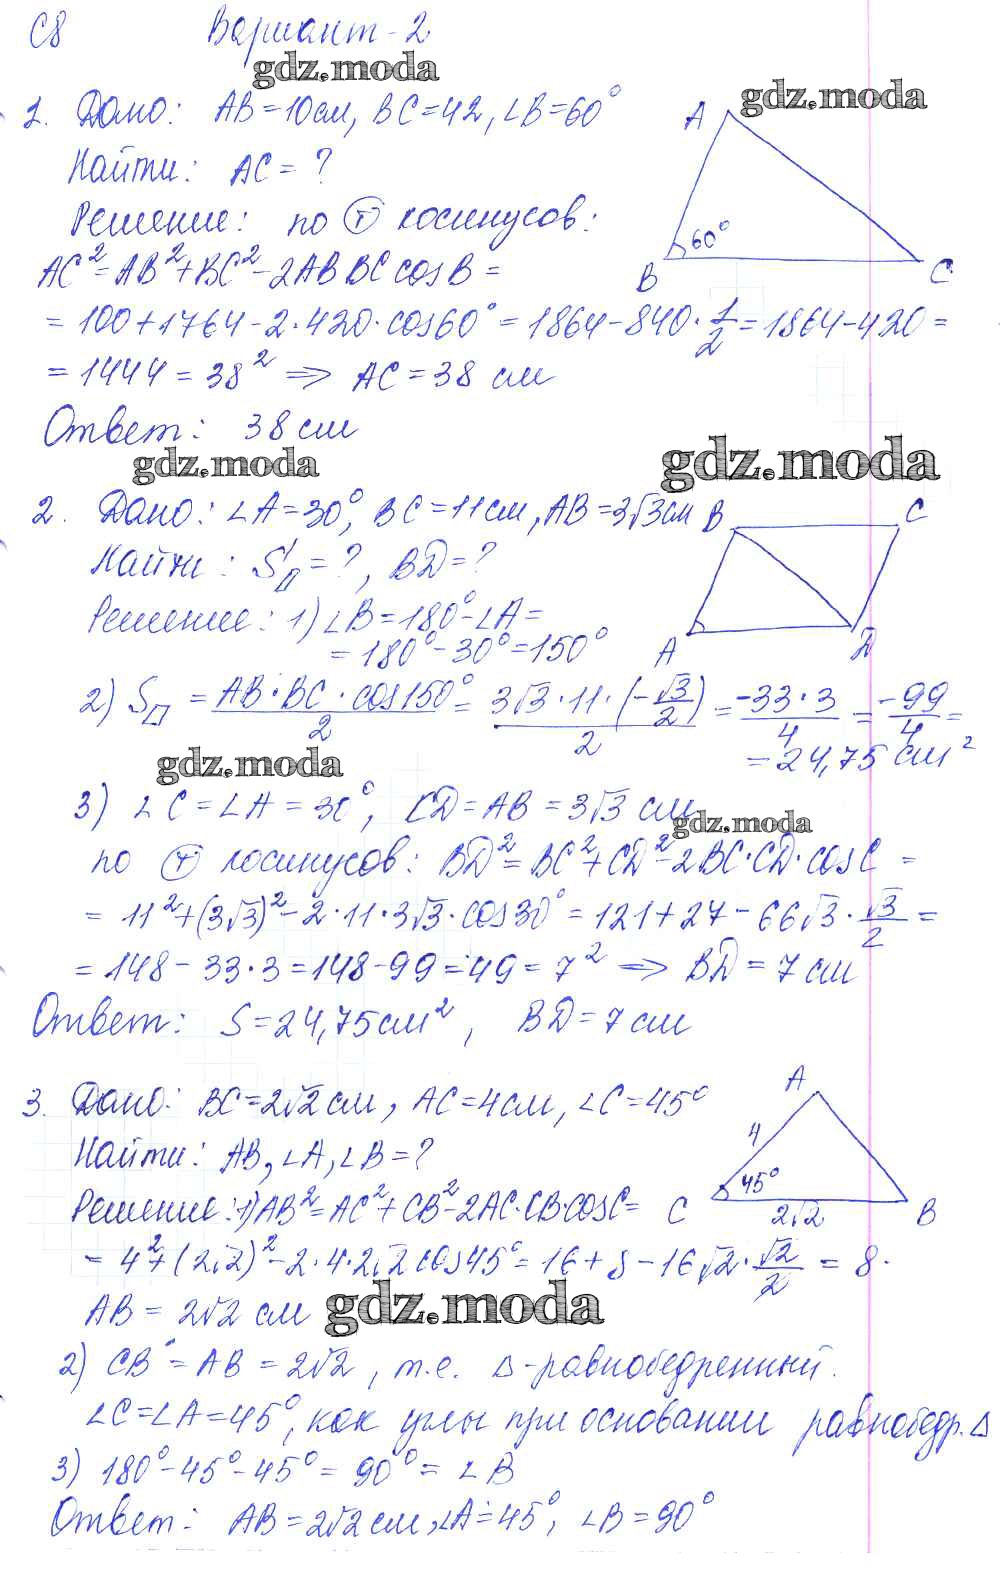 С8 Вариант-2
gdz.moda
gdz.moda
1. Дано: AB=10см, BC=42, ∠B=60°
Найти: AC=?
Решение: по Ⓣ косинусов:
AC²=AB²+BC²-2AB BC cosB=
=100+1764-2·420·cos60°=1864-840·1/2=1864-420=
=1444=38² ⇒ AC=38 см
Ответ: 38см
A
60°
B
C
gdz.moda
gdz.moda
2. Дано: ∠A=30°, BC=11см, AB=3√3см
Найти: S▱=?, BD=?
Решение: 1) ∠B=180°-∠A=
=180°-30°=150°
B
C
A
D
2) S▱ = AB·BC·cos150°/2 = 3√3·11·(-√3/2)/2 = -33·3/4 = -99/4 =
=24,75 см²
gdz.moda
3) ∠C=∠A=30°, CD=AB=3√3 см
gdz.moda
по Ⓣ косинусов: BD²=BC²+CD²-2BC·CD·cosC =
=11²+(3√3)²-2·11·3√3·cos30°=121+27-66√3·√3/2=
=148-33·3=148-99=49=7² ⇒ BD=7 см
Ответ: S=24,75см², BD=7 см
3. Дано: BC=2√2 см, AC=4см, ∠C=45°
Найти: AB, ∠A, ∠B=?
Решение: 1) AB²=AC²+CB²-2AC·CB·cosC=
=4²+(2√2)²-2·4·2√2 cos45°=16+8-16√2·√2/2=8.
AB=2√2 см
A
4
45°
C
2√2
B
gdz.moda
2) CB=AB=2√2, т.е. Δ-равнобедренный.
∠C=∠A=45°, как углы при основании равнобедр.Δ
3) 180°-45°-45°=90°=∠B
Ответ: AB=2√2 см, ∠A=45°, ∠B=90°